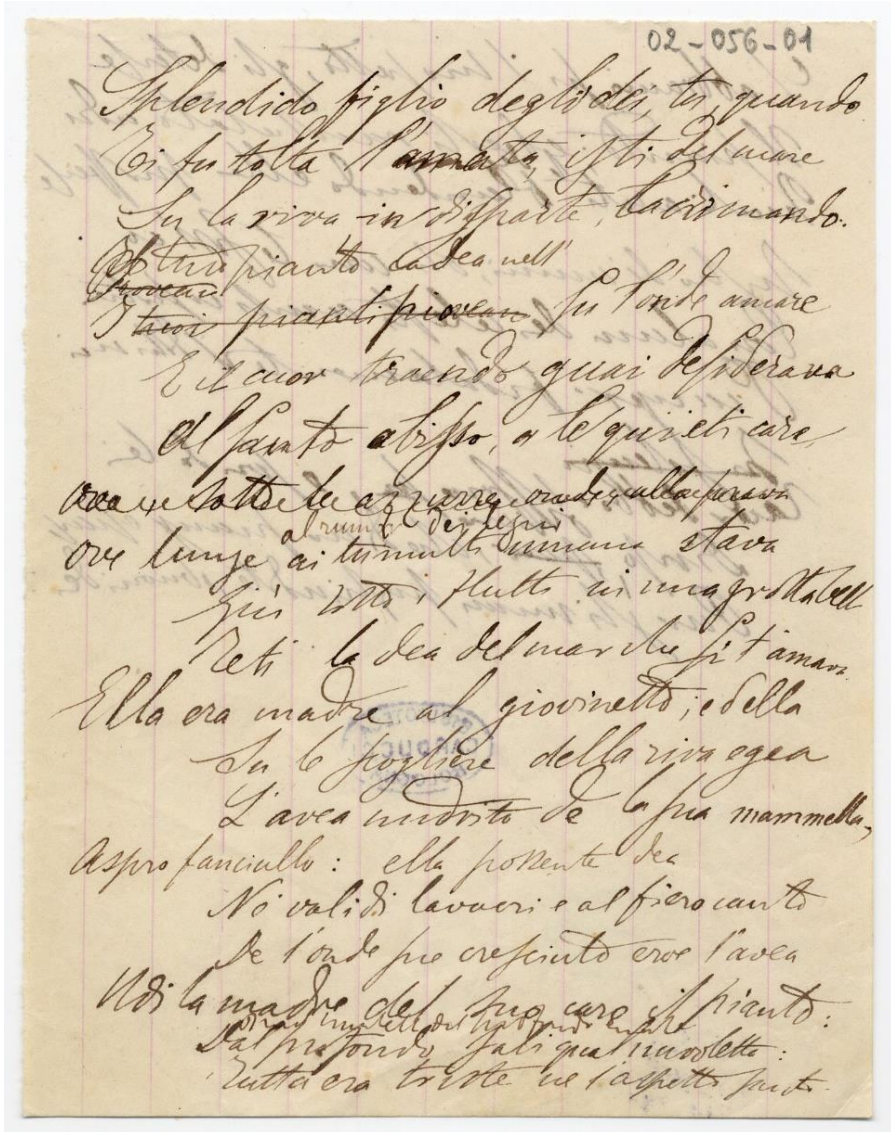 02-056-01
Splendido figlio degli dei, tu, quando
Ti fu tolta l'amata, isti del mare
Su la riva in disparte, lacrimando:
Il tuo pianto cadea nell'
Piovean
I tuoi pianti piovean su l'onde amare
E il cuor traendo guai desiderava
Al santo abisso, a le quieti care,
ove sotto le azzurre onde
a rumor dei legni
ove lunge ai tumulti umana stava
Giù sotto i flutti in una grotta bella
Teti la dea del mar che sì t'amava.
Ella era madre al giovinetto; ed ella
Su le scogliere della riva egea
L'avea nudrito de la sua mammella,
Aspro fanciullo: ella possente dea
Ne' validi lavacri e al fiero canto
De l'onde sue cresciuto eroe l'avea
Udì la madre del suo caro il pianto:
Dal profondo salì qual nuvoletta:
Tutta era triste ne l'aspetto santo.
CARDUCCI